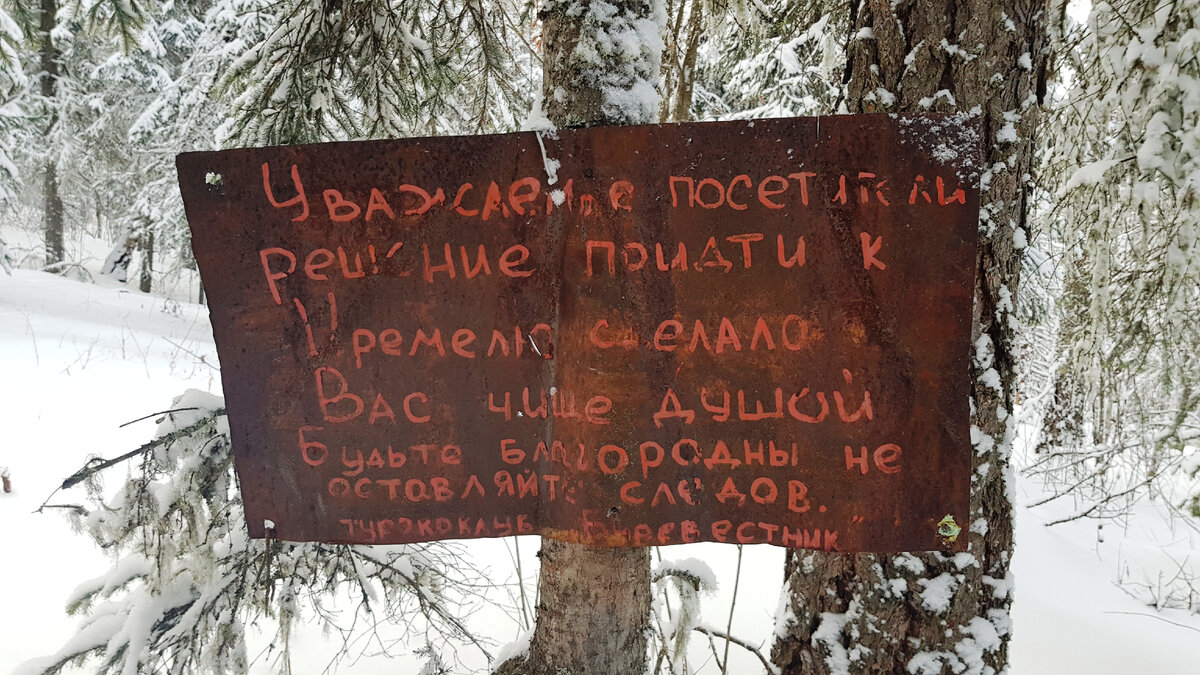 Уважаемые посетители
решение придти к
Кремелю сделало
Вас чище душой
Будьте благородны не
оставляйте следов.
турэкоклуб "Буревестник"